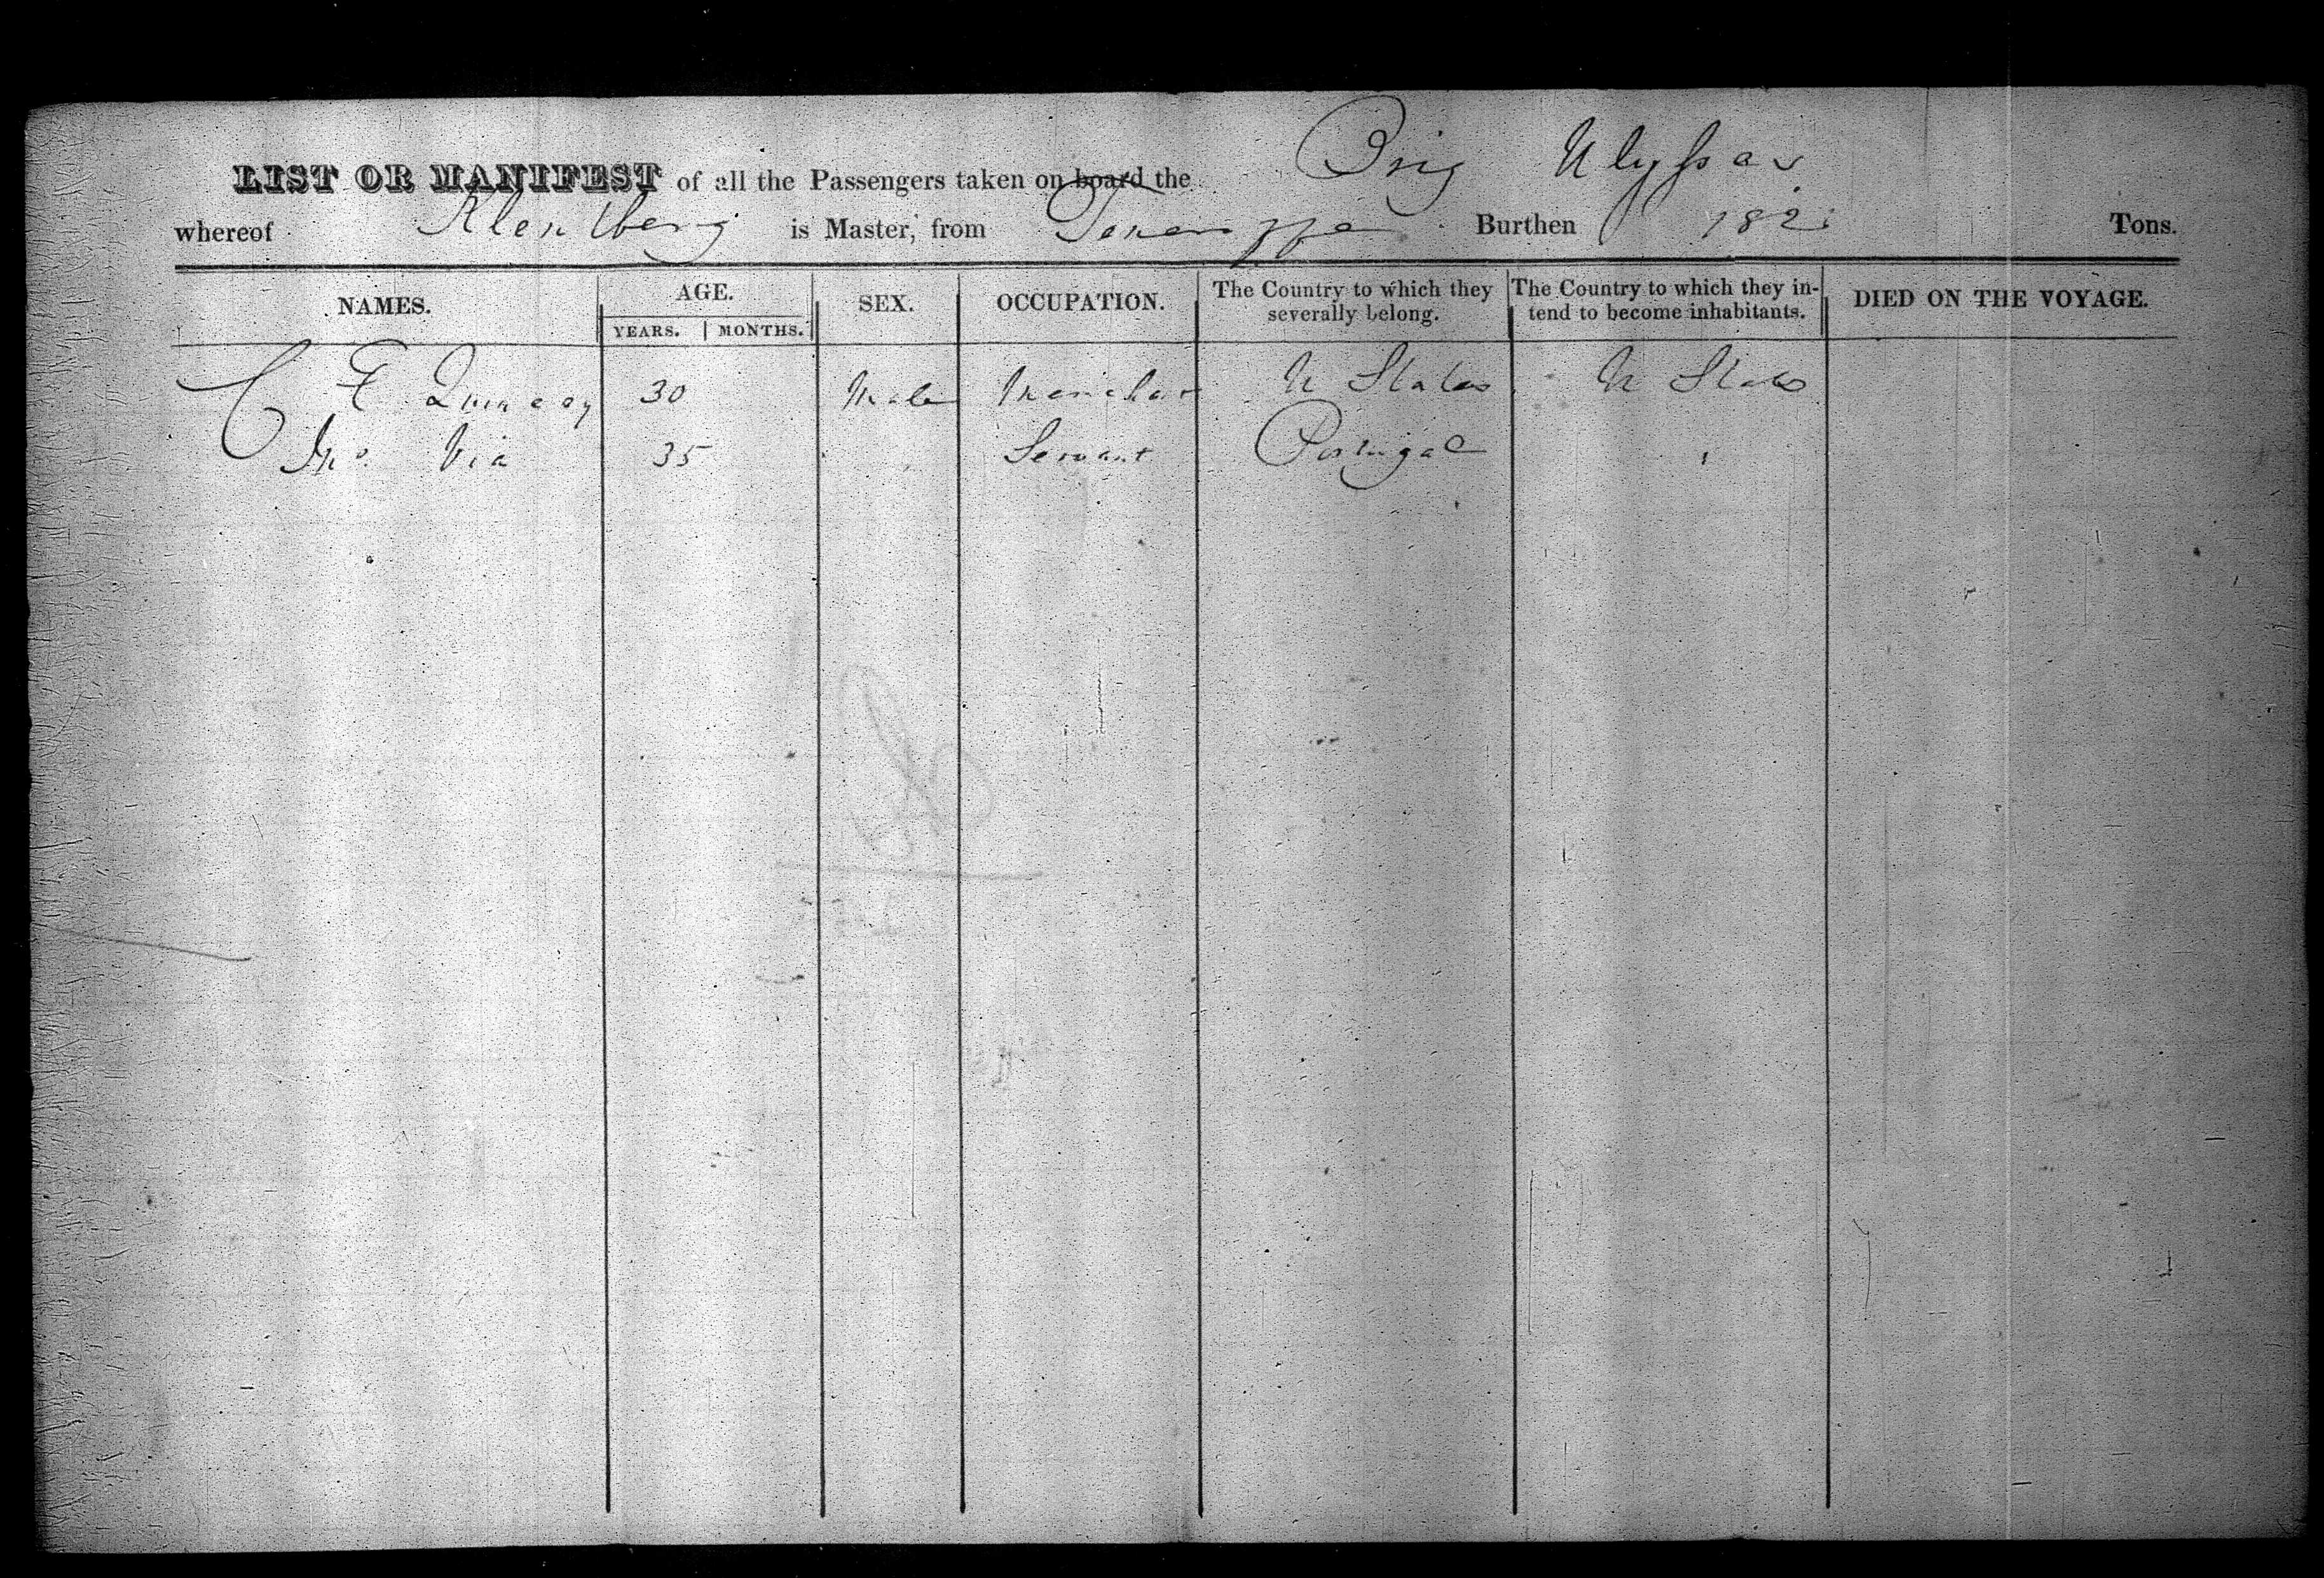 LIST OR MANIFEST of all the Passengers taken on board the Brig Ulysses
whereof Klenberg is Master, from Teneriffe Burthen 182 Tons.
NAMES. AGE. SEX. OCCUPATION. The Country to which they severally belong. The Country to which they intend to become inhabitants. DIED ON THE VOYAGE.
YEARS. MONTHS.
C E Quincey 30 Male Merchant U States U States
Jno. Via 35 Servant Portugal "